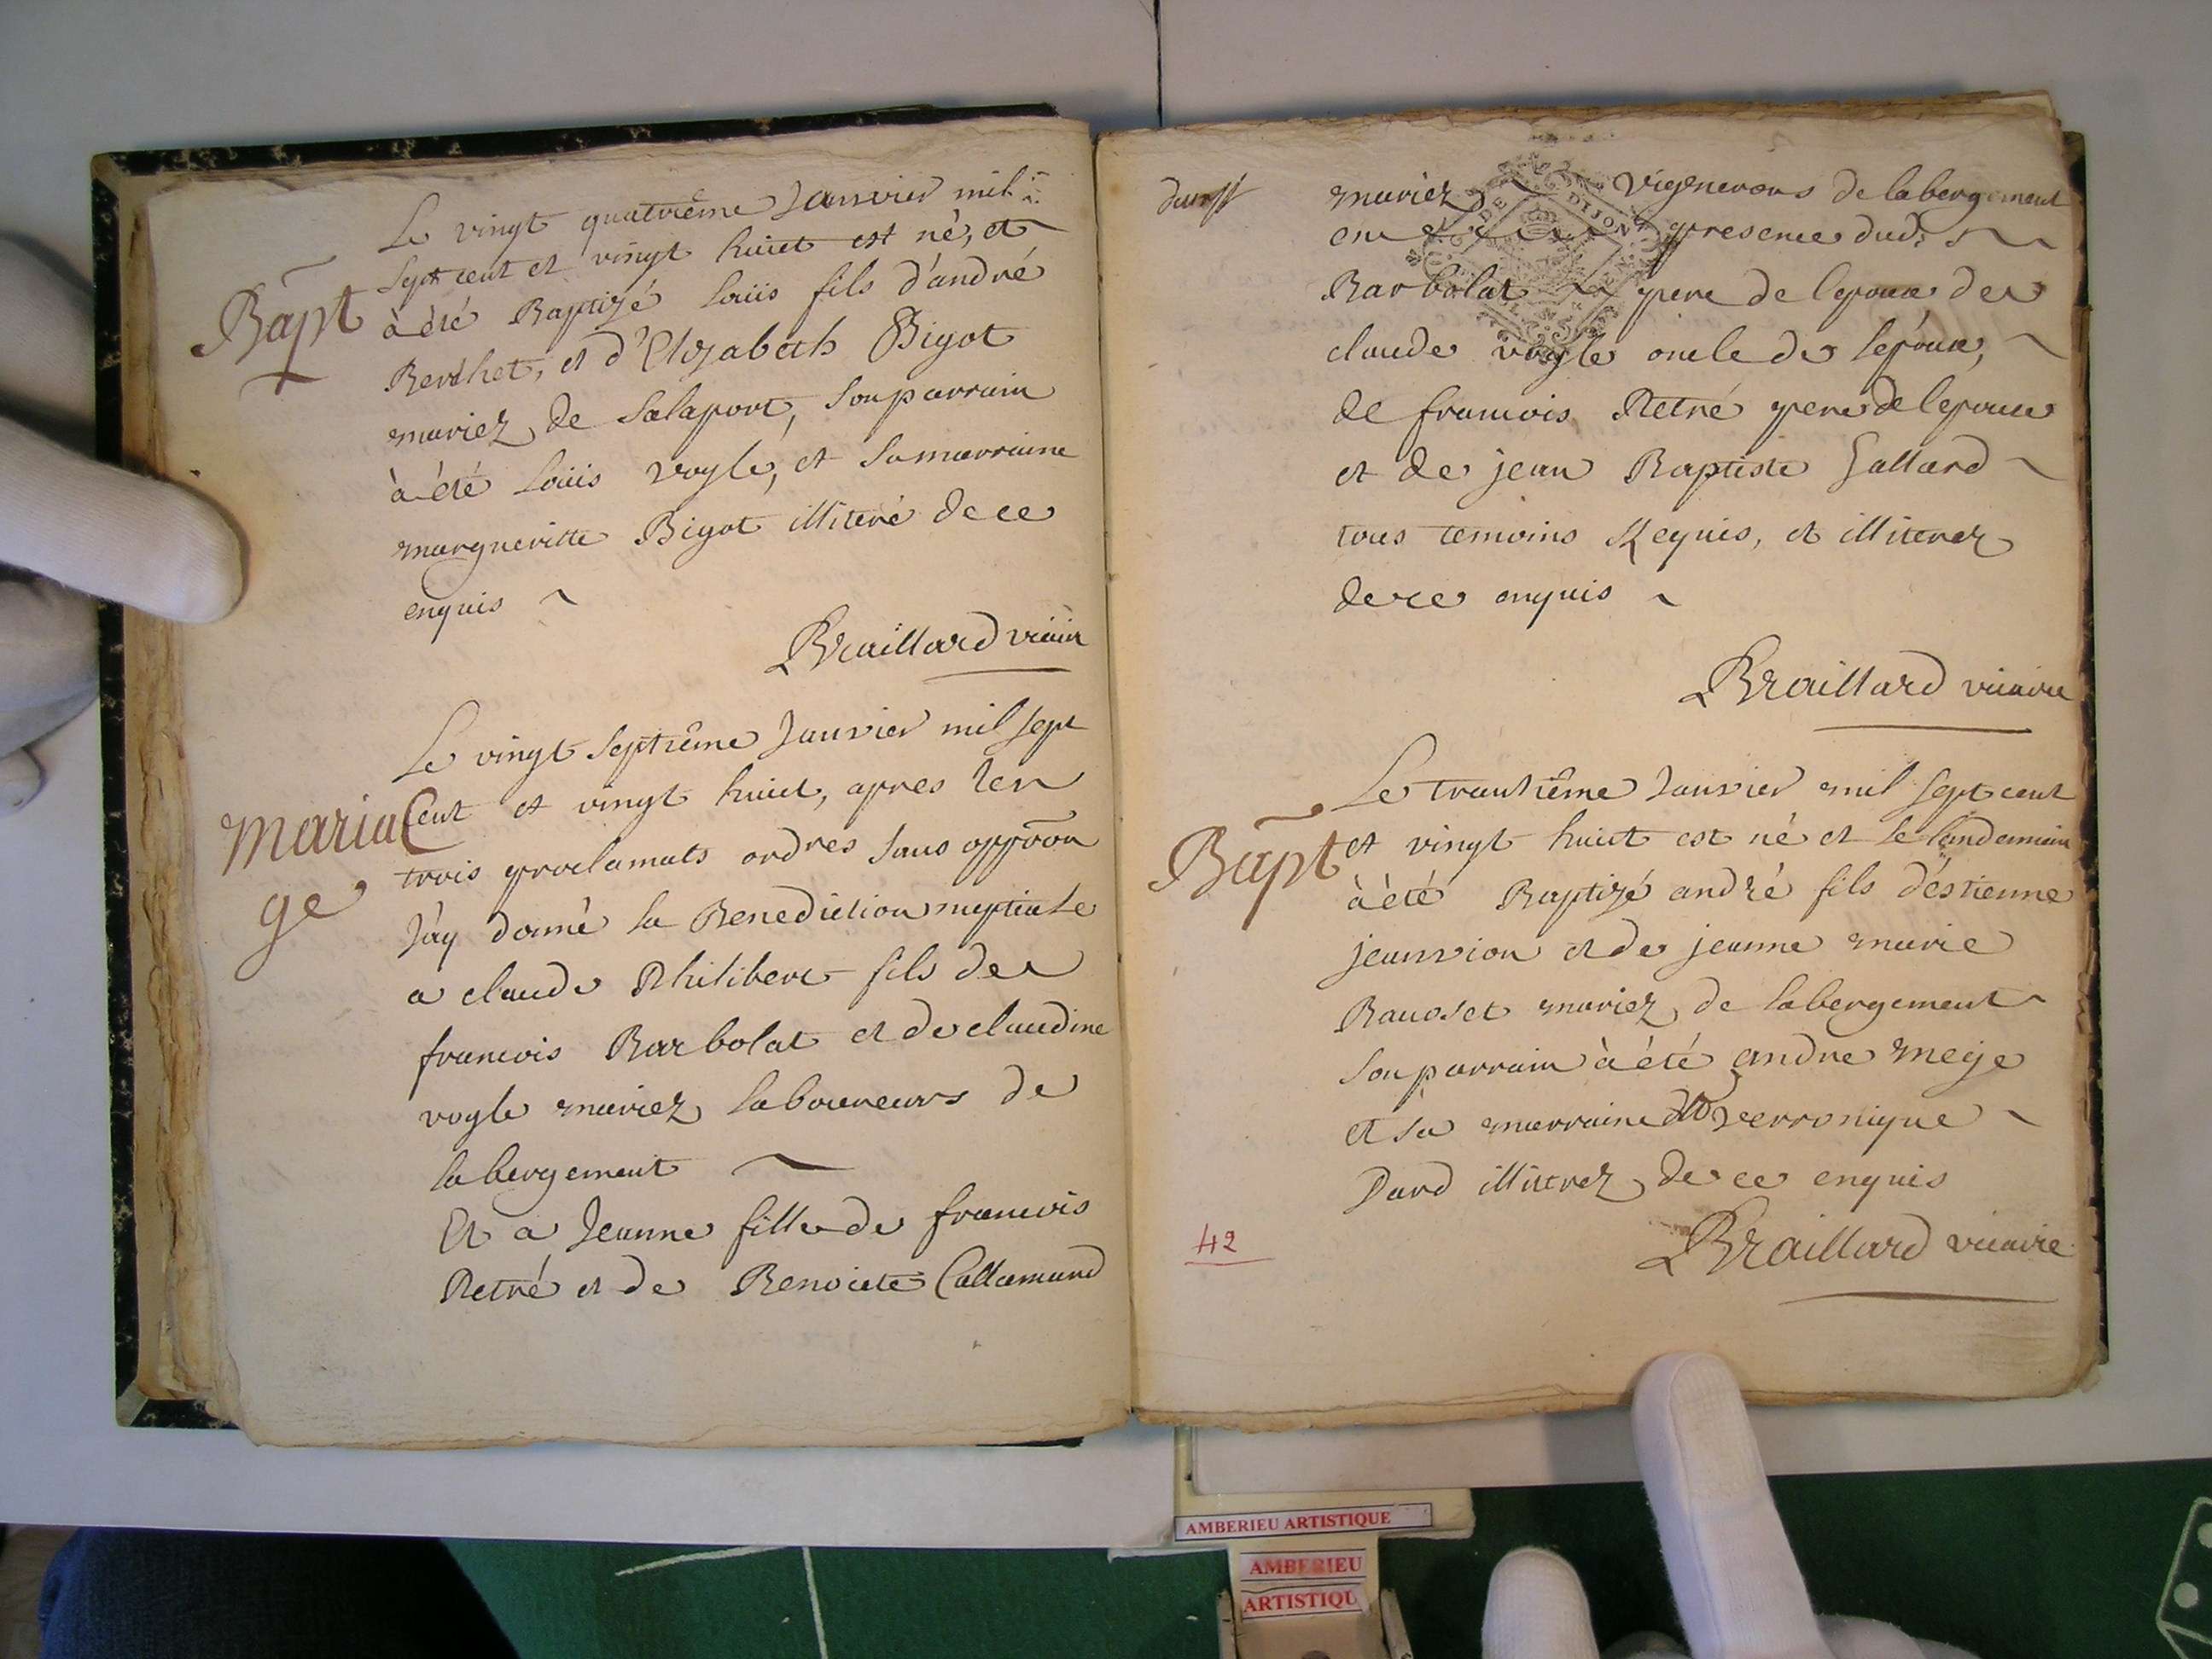 Bapt
Le vingt quatrième Janvier mil
sept cent et vingt huict est né, et
à été Baptizé Loüis fils d'andré
Berthet, et d'Elizabeth Bigot
mariez de Salaport, Son parrain
à été Loüis vogle, et Sa marraine
margueritte Bigot illiteré de ce
enquis
Braillard
Maria
ge
Le vingt Septième Janvier mil sept
Cent et vingt huict, apres les
trois proclamats ordres sans oppoon
J'ay donné la Benediction nuptiale
a claude Philibert fils de
francois Barbolat et de claudine
vogle mariez laboureurs de
labergement
Et a Jeanne fille de francois
Retré et de Benoicte Callamard
mariez vignerons de labergement
en presence dud.
Barbolat pere de lepoux de
claude vogle oncle de lepoux,
de francois Retré pere de lepouse
et de jean Baptiste Gallard
tous temoins Requis, et illiterez
de ce enquis
Braillard vicaire
Bapt
Le trantième Janvier mil sept cent
et vingt huict est né et le landemain
à été Baptizé andré fils d'éstienne
jeanvion et de jeanne marie
Rausset mariez de labergement
Son parrain à été andre mege
et sa marraine verronique
Dard illitrez de ce enquis
Braillard vicaire
42
DE DIJON
AMBERIEU ARTISTIQUE
AMBERIEU
ARTISTIQU